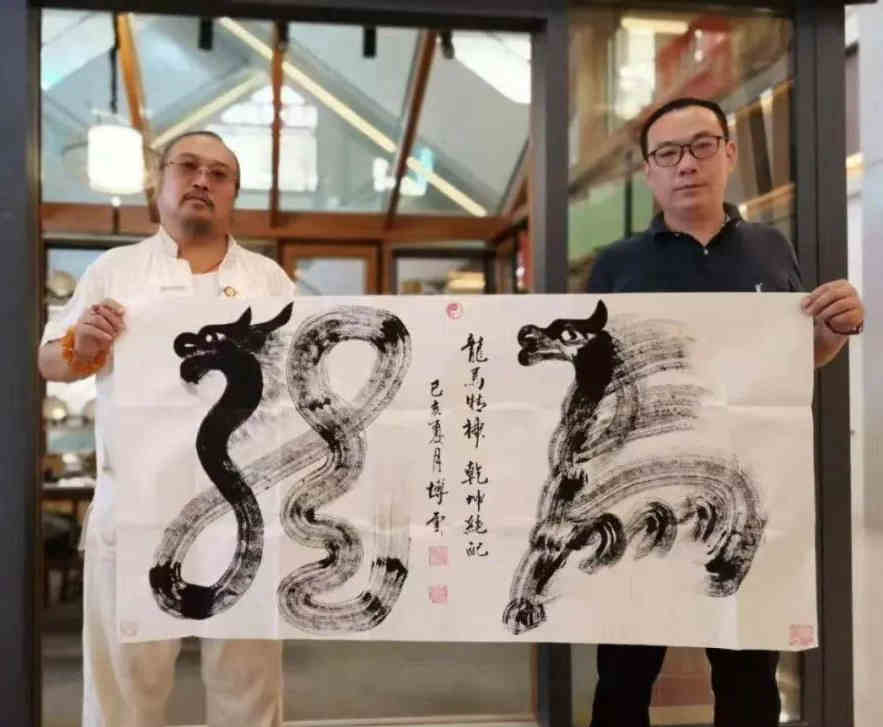 龍馬精神 乾坤絕配
己亥夏月博雲